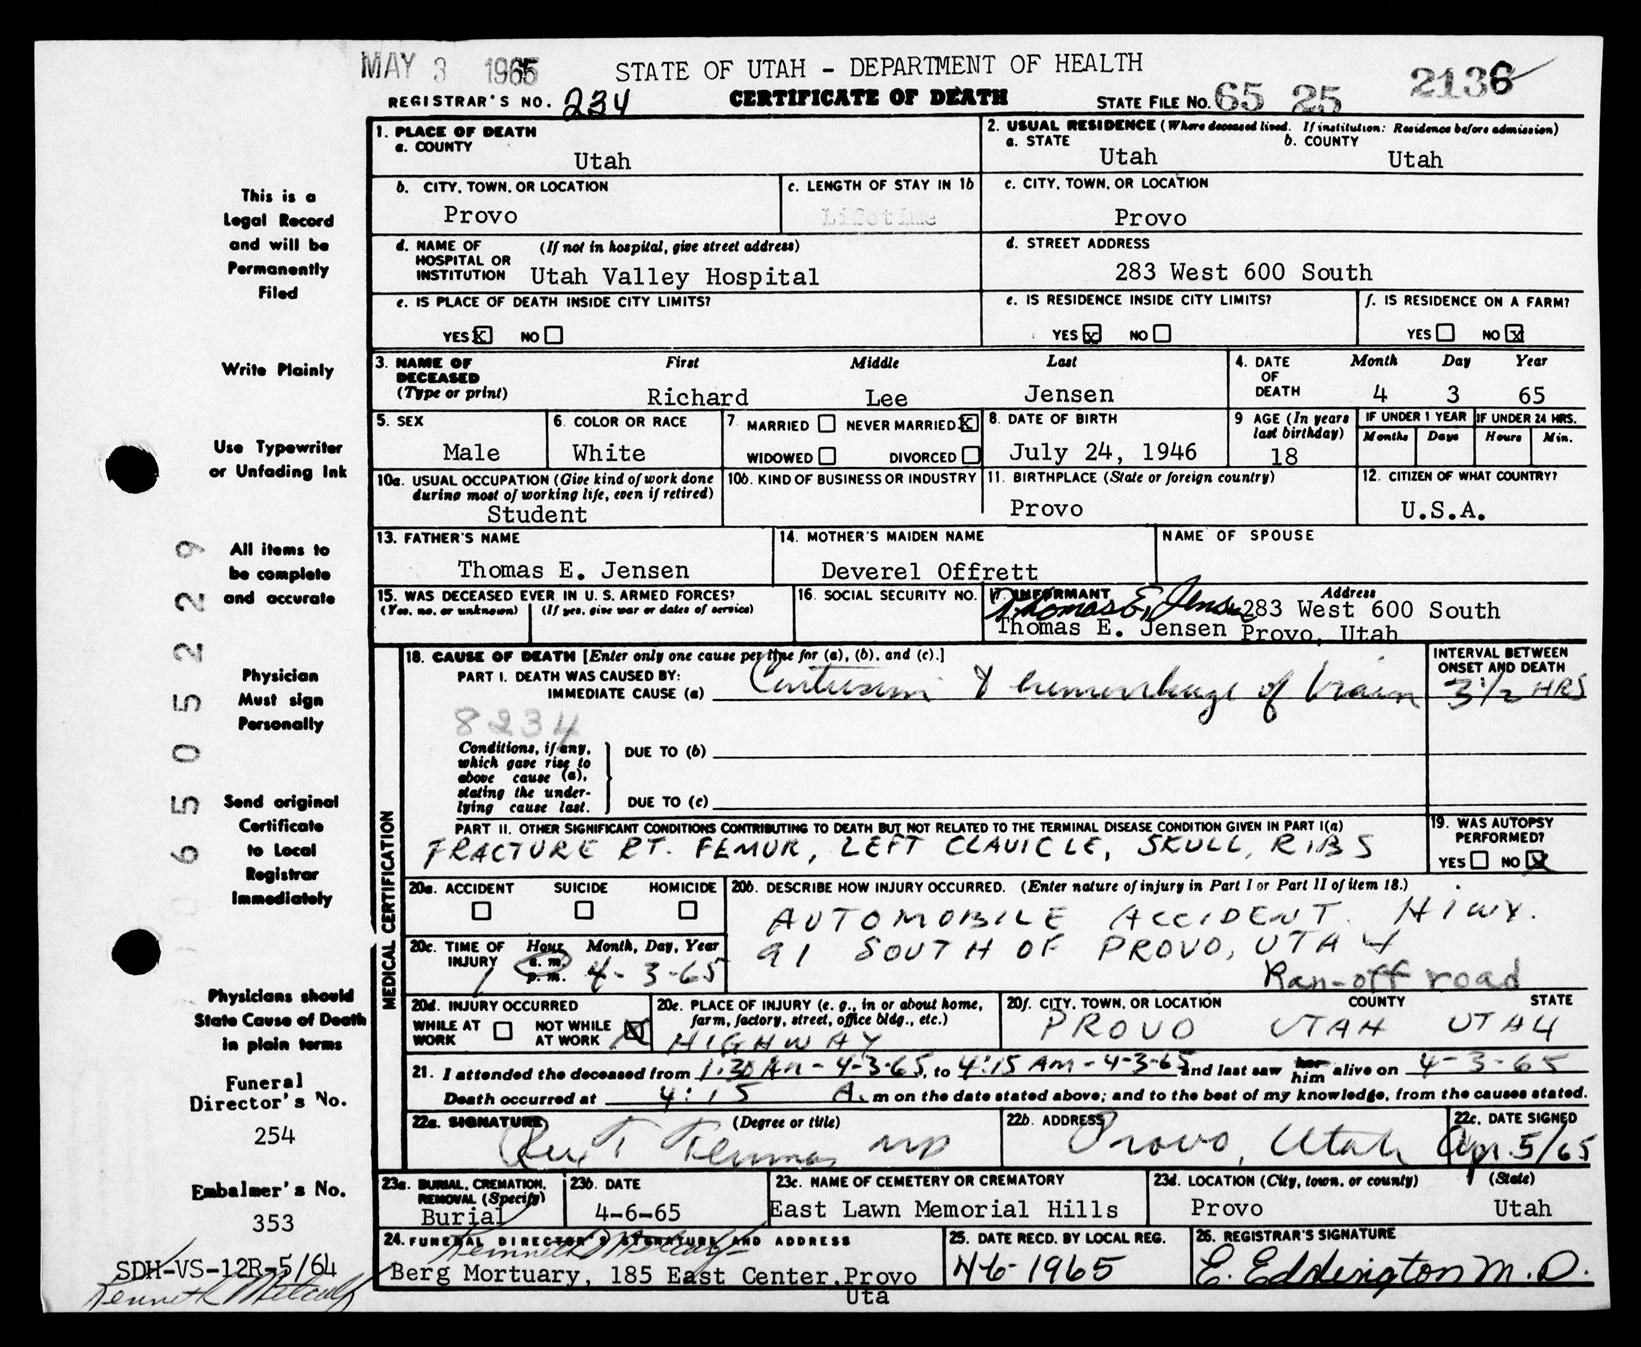 MAY 3 1965
STATE OF UTAH - DEPARTMENT OF HEALTH
2136
REGISTRAR'S NO. 234
CERTIFICATE OF DEATH
STATE FILE NO. 65 25
This is a
Legal Record
and will be
Permanently
Filed
Write Plainly
Use Typewriter
or Unfading Ink
All items to
be complete
and accurate
Physician
Must sign
Personally
Send original
Certificate
to Local
Registrar
Immediately
Physicians should
State Cause of Death
in plain terms
Funeral
Director's No.
254
Embalmer's No.
353
SDH-VS-12R-5/64
Kenneth Metcalf
0 6 5 0 5 2 2 9
1. PLACE OF DEATH
a. COUNTY
Utah
2. USUAL RESIDENCE (Where deceased lived. If institution: Residence before admission)
a. STATE b. COUNTY
Utah Utah
b. CITY, TOWN, OR LOCATION
Provo
c. LENGTH OF STAY IN 1b
Lifetime
c. CITY, TOWN, OR LOCATION
Provo
d. NAME OF HOSPITAL OR INSTITUTION (If not in hospital, give street address)
Utah Valley Hospital
d. STREET ADDRESS
283 West 600 South
e. IS PLACE OF DEATH INSIDE CITY LIMITS?
YES X NO
e. IS RESIDENCE INSIDE CITY LIMITS?
YES X NO
f. IS RESIDENCE ON A FARM?
YES NO X
3. NAME OF DECEASED (Type or print)
First Middle Last
Richard Lee Jensen
4. DATE OF DEATH
Month Day Year
4 3 65
5. SEX
Male
6. COLOR OR RACE
White
7. MARRIED NEVER MARRIED X
WIDOWED DIVORCED
8. DATE OF BIRTH
July 24, 1946
9 AGE (In years last birthday)
18
IF UNDER 1 YEAR IF UNDER 24 HRS.
Months Days Hours Min.
10a. USUAL OCCUPATION (Give kind of work done during most of working life, even if retired)
Student
10b. KIND OF BUSINESS OR INDUSTRY
11. BIRTHPLACE (State or foreign country)
Provo
12. CITIZEN OF WHAT COUNTRY?
U.S.A.
13. FATHER'S NAME
Thomas E. Jensen
14. MOTHER'S MAIDEN NAME
Deverel Offrett
NAME OF SPOUSE
15. WAS DECEASED EVER IN U.S. ARMED FORCES?
(Yes, no, or unknown) (If yes, give war or dates of service)
16. SOCIAL SECURITY NO.
17. INFORMANT Address
Thomas E. Jensen 283 West 600 South
Thomas E. Jensen Provo, Utah
MEDICAL CERTIFICATION
18. CAUSE OF DEATH [Enter only one cause per line for (a), (b), and (c).]
INTERVAL BETWEEN ONSET AND DEATH
PART I. DEATH WAS CAUSED BY:
IMMEDIATE CAUSE (a) Contusion & hemorrhage of brain 3 1/2 HRS
8234
Conditions, if any, which gave rise to above cause (a), stating the underlying cause last.
DUE TO (b)
DUE TO (c)
PART II. OTHER SIGNIFICANT CONDITIONS CONTRIBUTING TO DEATH BUT NOT RELATED TO THE TERMINAL DISEASE CONDITION GIVEN IN PART I(a)
FRACTURE RT. FEMUR, LEFT CLAVICLE, SKULL, RIBS
19. WAS AUTOPSY PERFORMED?
YES NO X
20a. ACCIDENT SUICIDE HOMICIDE
20b. DESCRIBE HOW INJURY OCCURRED. (Enter nature of injury in Part I or Part II of item 18.)
AUTOMOBILE ACCIDENT. HIWY.
91 SOUTH OF PROVO, UTAH
Ran-off road
20c. TIME OF INJURY
Hour Month, Day, Year
1 a.m. p.m. 4-3-65
20d. INJURY OCCURRED
WHILE AT WORK NOT WHILE AT WORK X
20e. PLACE OF INJURY (e. g., in or about home, farm, factory, street, office bldg., etc.)
HIGHWAY
20f. CITY, TOWN, OR LOCATION COUNTY STATE
PROVO UTAH UTAH
21. I attended the deceased from 1:30 AM - 4-3-65, to 4:15 AM - 4-3-65 and last saw her him alive on 4-3-65
Death occurred at 4:15 A. m on the date stated above; and to the best of my knowledge, from the causes stated.
22a. SIGNATURE (Degree or title)
MD
22b. ADDRESS
Provo, Utah
22c. DATE SIGNED
Apr. 5/65
23a. BURIAL, CREMATION, REMOVAL (Specify)
Burial
23b. DATE
4-6-65
23c. NAME OF CEMETERY OR CREMATORY
East Lawn Memorial Hills
23d. LOCATION (City, town, or county) (State)
Provo Utah
24. FUNERAL DIRECTOR'S SIGNATURE AND ADDRESS
Kenneth D Metcalf
Berg Mortuary, 185 East Center, Provo
Uta
25. DATE RECD. BY LOCAL REG.
4-6-1965
26. REGISTRAR'S SIGNATURE
E. Eddington M.D.